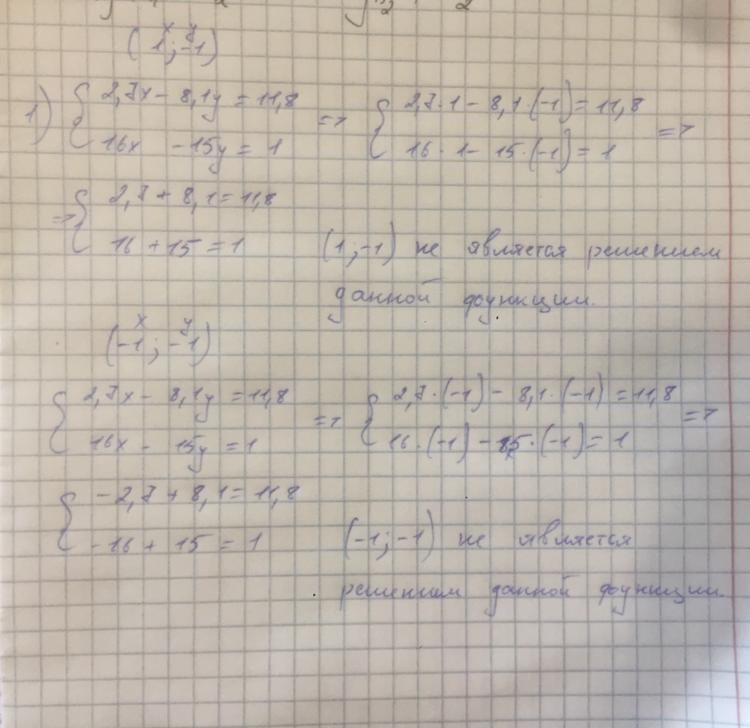 x y
(1 ; -1)
1) { 2,7x - 8,1y = 11,8 => { 2,7·1 - 8,1·(-1) = 11,8 =>
16x - 15y = 1 16·1 - 15·(-1) = 1
=> { 2,7 + 8,1 = 11,8
16 + 15 = 1 (1 ; -1) не является решением
данной функции.
x y
(-1 ; -1)
{ 2,7x - 8,1y = 11,8 => { 2,7·(-1) - 8,1·(-1) = 11,8 =>
16x - 15y = 1 16·(-1) - 15·(-1) = 1
{ -2,7 + 8,1 = 11,8
-16 + 15 = 1 (-1 ; -1) не является
решением данной функции.